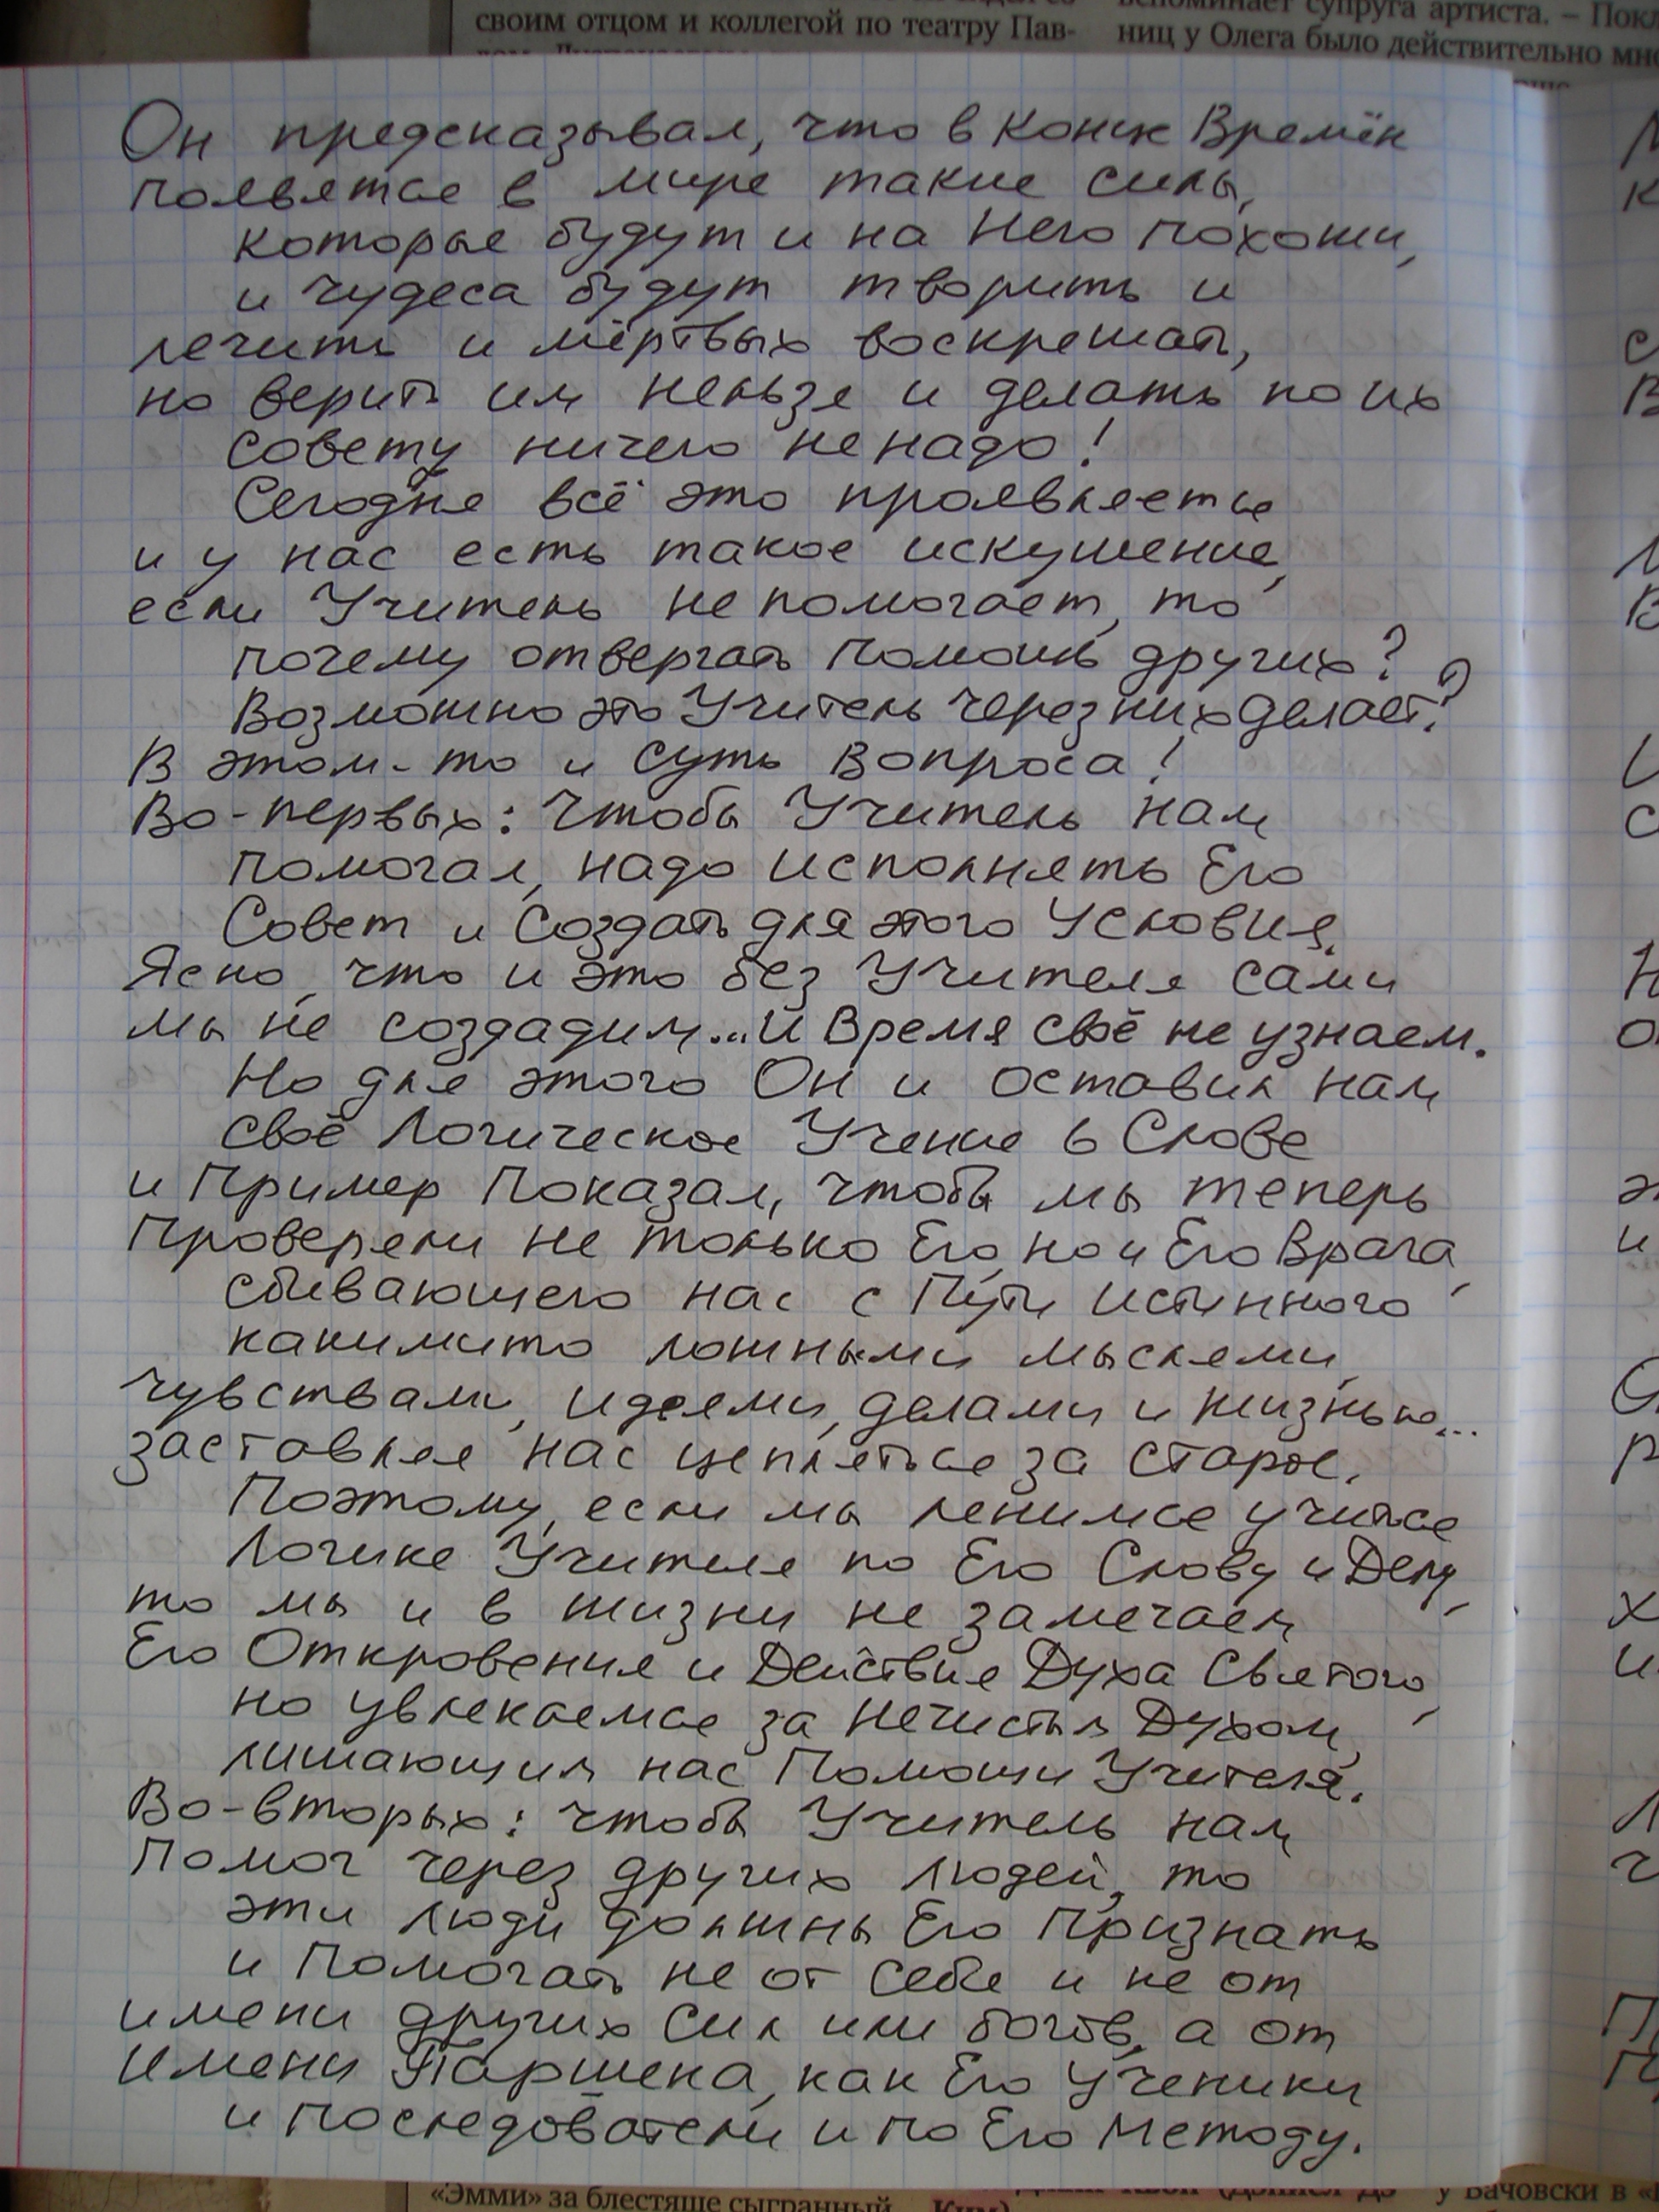 своим отцом и коллегой по театру Пав-
вспоминает супруга артиста. – Покл
ниц у Олега было действительно мно
Он предсказывал, что в конце Времён
появятся в мире такие силы,
которые будут и на Него похожи,
и чудеса будут творить и
лечить и мёртвых воскрешать,
но верить им нельзя и делать по их
совету ничего не надо!
Сегодня всё это проявляется
и у нас есть такое искушение,
если Учитель не помогает, то
почему отвергать помощь других?
Возможно это Учитель через них делает?
В этом-то и суть вопроса!
Во-первых: Чтобы Учитель нам
помогал, надо исполнять Его
Совет и создать для этого Условия.
Ясно, что и это без Учителя сами
мы не создадим... и Время своё не узнаем.
Но для этого Он и оставил нам
своё Логическое Учение в Слове
и Пример Показал, чтобы мы теперь
Проверяли не только Его, но и Его Врага,
сбивающего нас с Пути Истинного
какимито ложными мыслями,
чувствами, идеями, делами и жизнью...
заставляя нас цепляться за старое.
Поэтому, если мы ленимся учиться
Логике Учителя по Его Слову и Делу,
то мы и в жизни не замечаем
Его Откровения и Действия Духа Святого,
но увлекаемся за Нечистым Духом,
лишающим нас Помощи Учителя.
Во-вторых: чтобы Учитель нам
Помог через других людей, то
эти люди должны Его Признать
и Помогать не от себя и не от
имени других Сил или богов, а от
Имени Паршека, как Его Ученики
и последователи и по Его Методу.
«Эмми» за блестяще сыгранный
у Вачовски в «